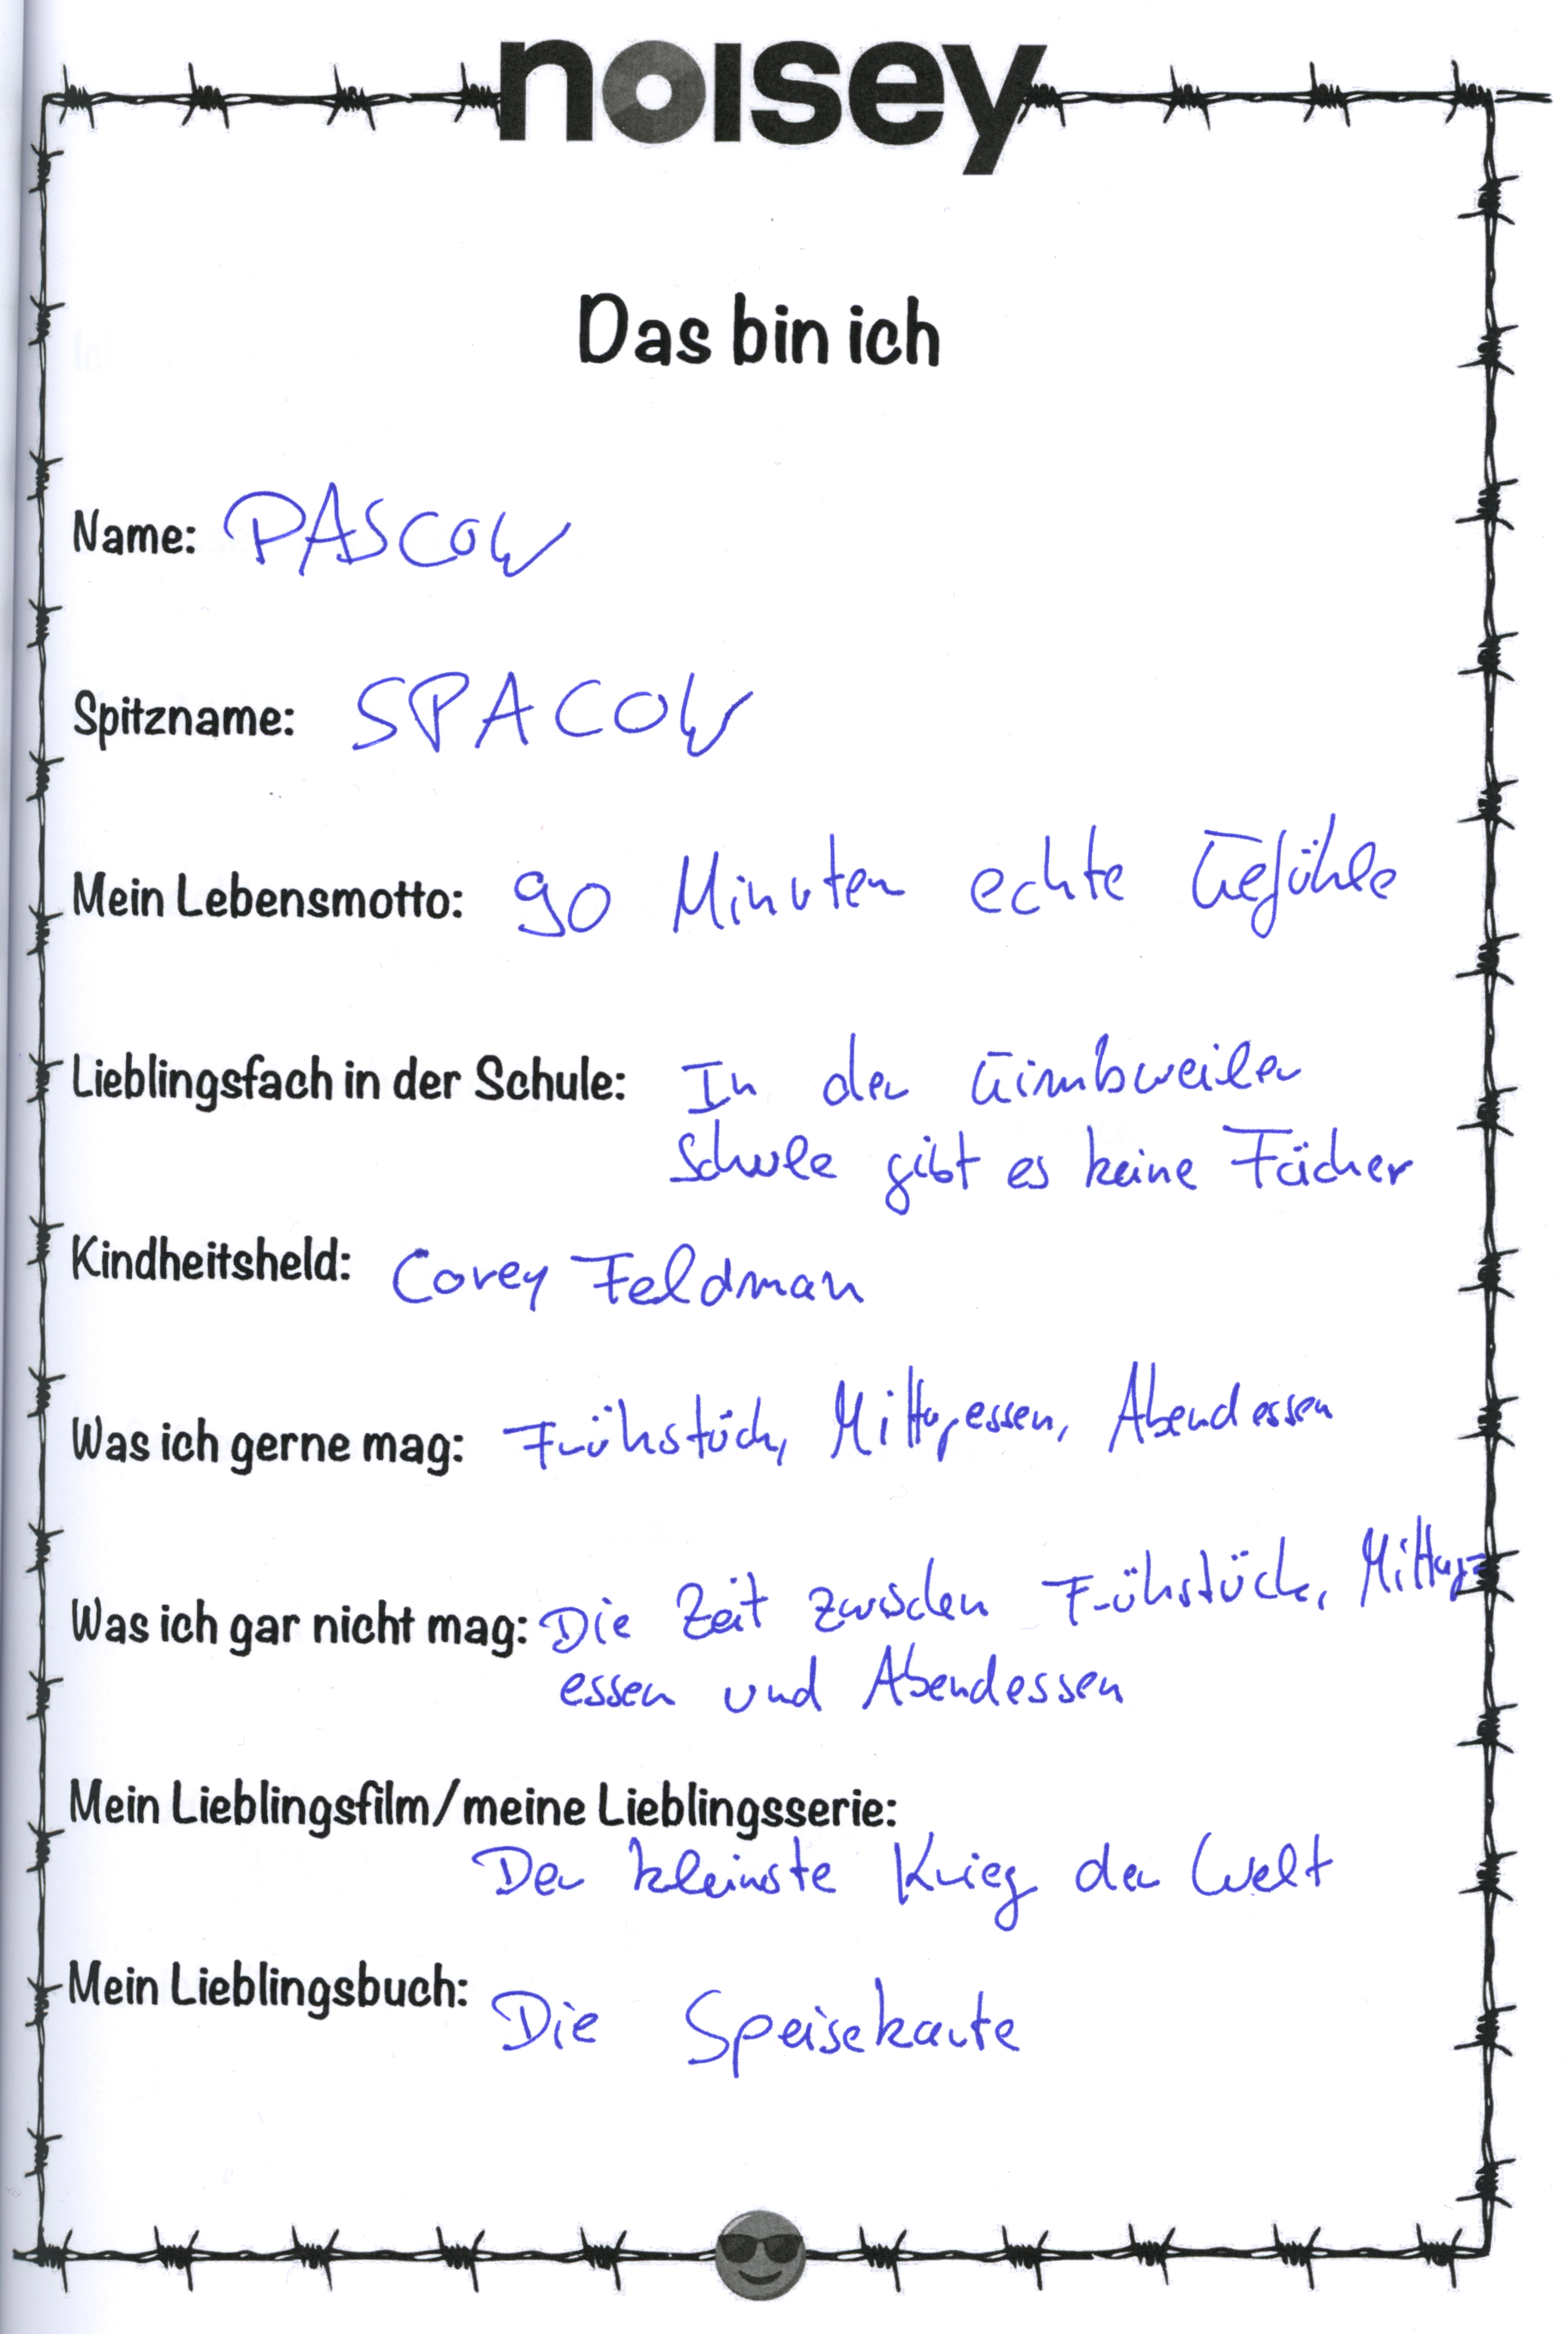 noisey
Das bin ich
Name: PASCOW
Spitzname: SPACOW
Mein Lebensmotto: 90 Minuten echte Gefühle
Lieblingsfach in der Schule: In der Gimbweiler
Schule gibt es keine Fächer
Kindheitsheld: Corey Feldman
Was ich gerne mag: Frühstück, Mittagessen, Abendessen
Was ich gar nicht mag: Die Zeit zwischen Frühstück, Mittag-
essen und Abendessen
Mein Lieblingsfilm/meine Lieblingsserie:
Der kleinste Krieg der Welt
Mein Lieblingsbuch: Die Speisekarte